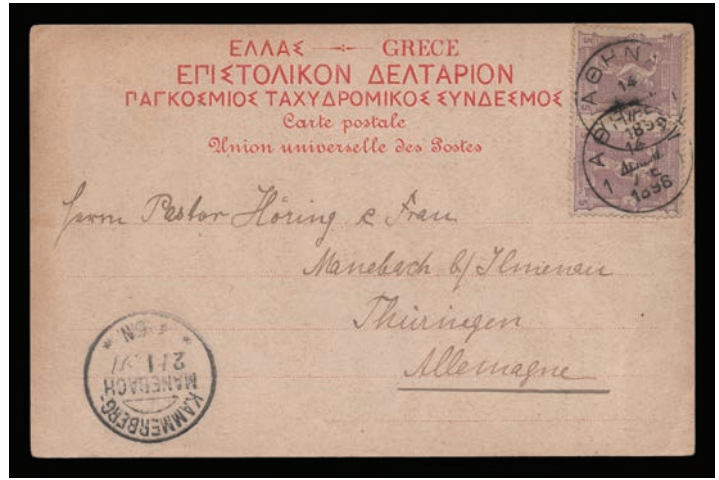 ΕΛΛΑΣ — GRECE
ΕΠΙΣΤΟΛΙΚΟΝ ΔΕΛΤΑΡΙΟΝ
ΠΑΓΚΟΣΜΙΟΣ ΤΑΧΥΔΡΟΜΙΚΟΣ ΣΥΝΔΕΣΜΟΣ
Carte postale
Union universelle des Postes
5
ΑΘΗΝ
14
1896
5
1 ΑΘΗΝΑΙ
14
ΔΕΚΕΜ.
1896
5
Herrn Pastor Höring & Frau
Manebach b/ Ilmenau
Thüringen
Allemagne
KAMMERBERG-
MANEBACH
6N.